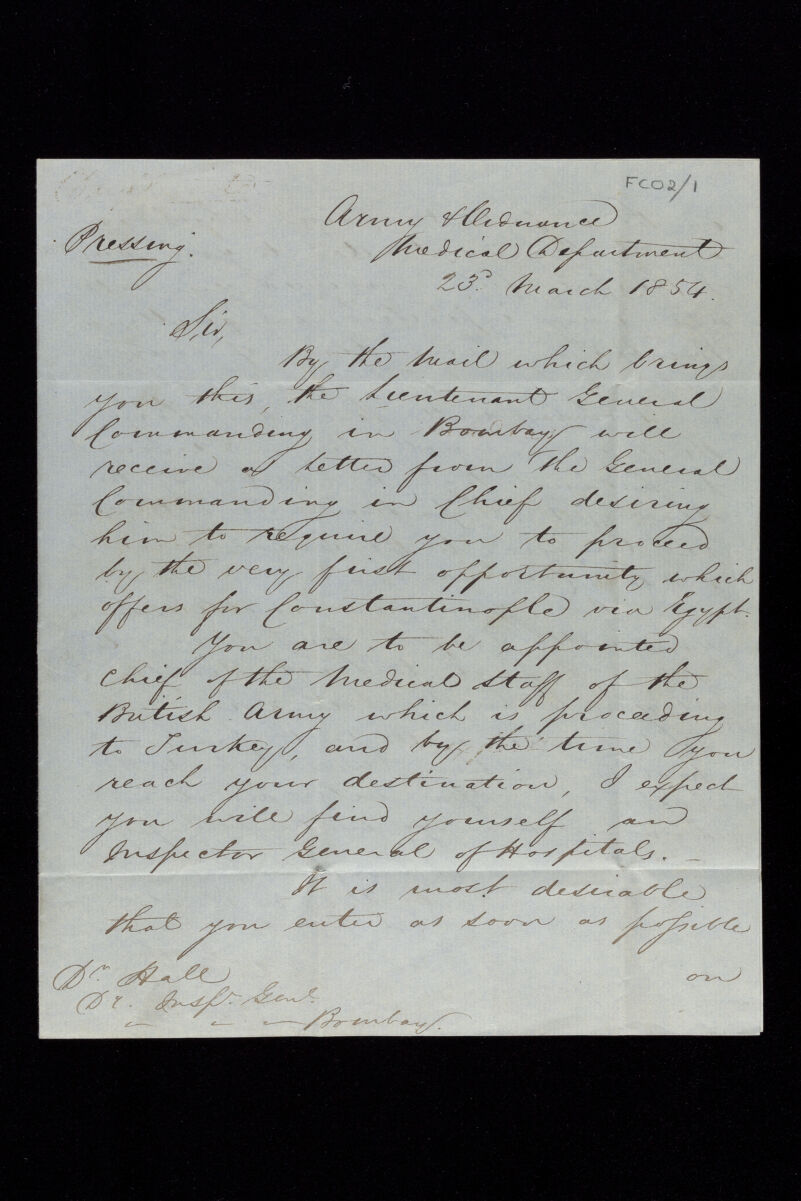 FCO2/1
Army & Ordnance
Pressing.
Medical Department
23d. March 1854.
Sir,
By the Mail which brings
you this, the Lieutenant General
Commanding in Bombay will
receive a letter from the General
Commanding in Chief desiring
him to require you to proceed
by the very first opportunity which
offers for Constantinople via Egypt.
You are to be appointed
Chief of the Medical Staff of the
British Army which is proceeding
to Turkey, and by the time you
reach your destination, I expect
you will find yourself an
Inspector General of Hospitals. —
It is most desirable
that you enter as soon as possible
on
Dr. Hall
Dy. Inspr. Genl.
" " — Bombay.